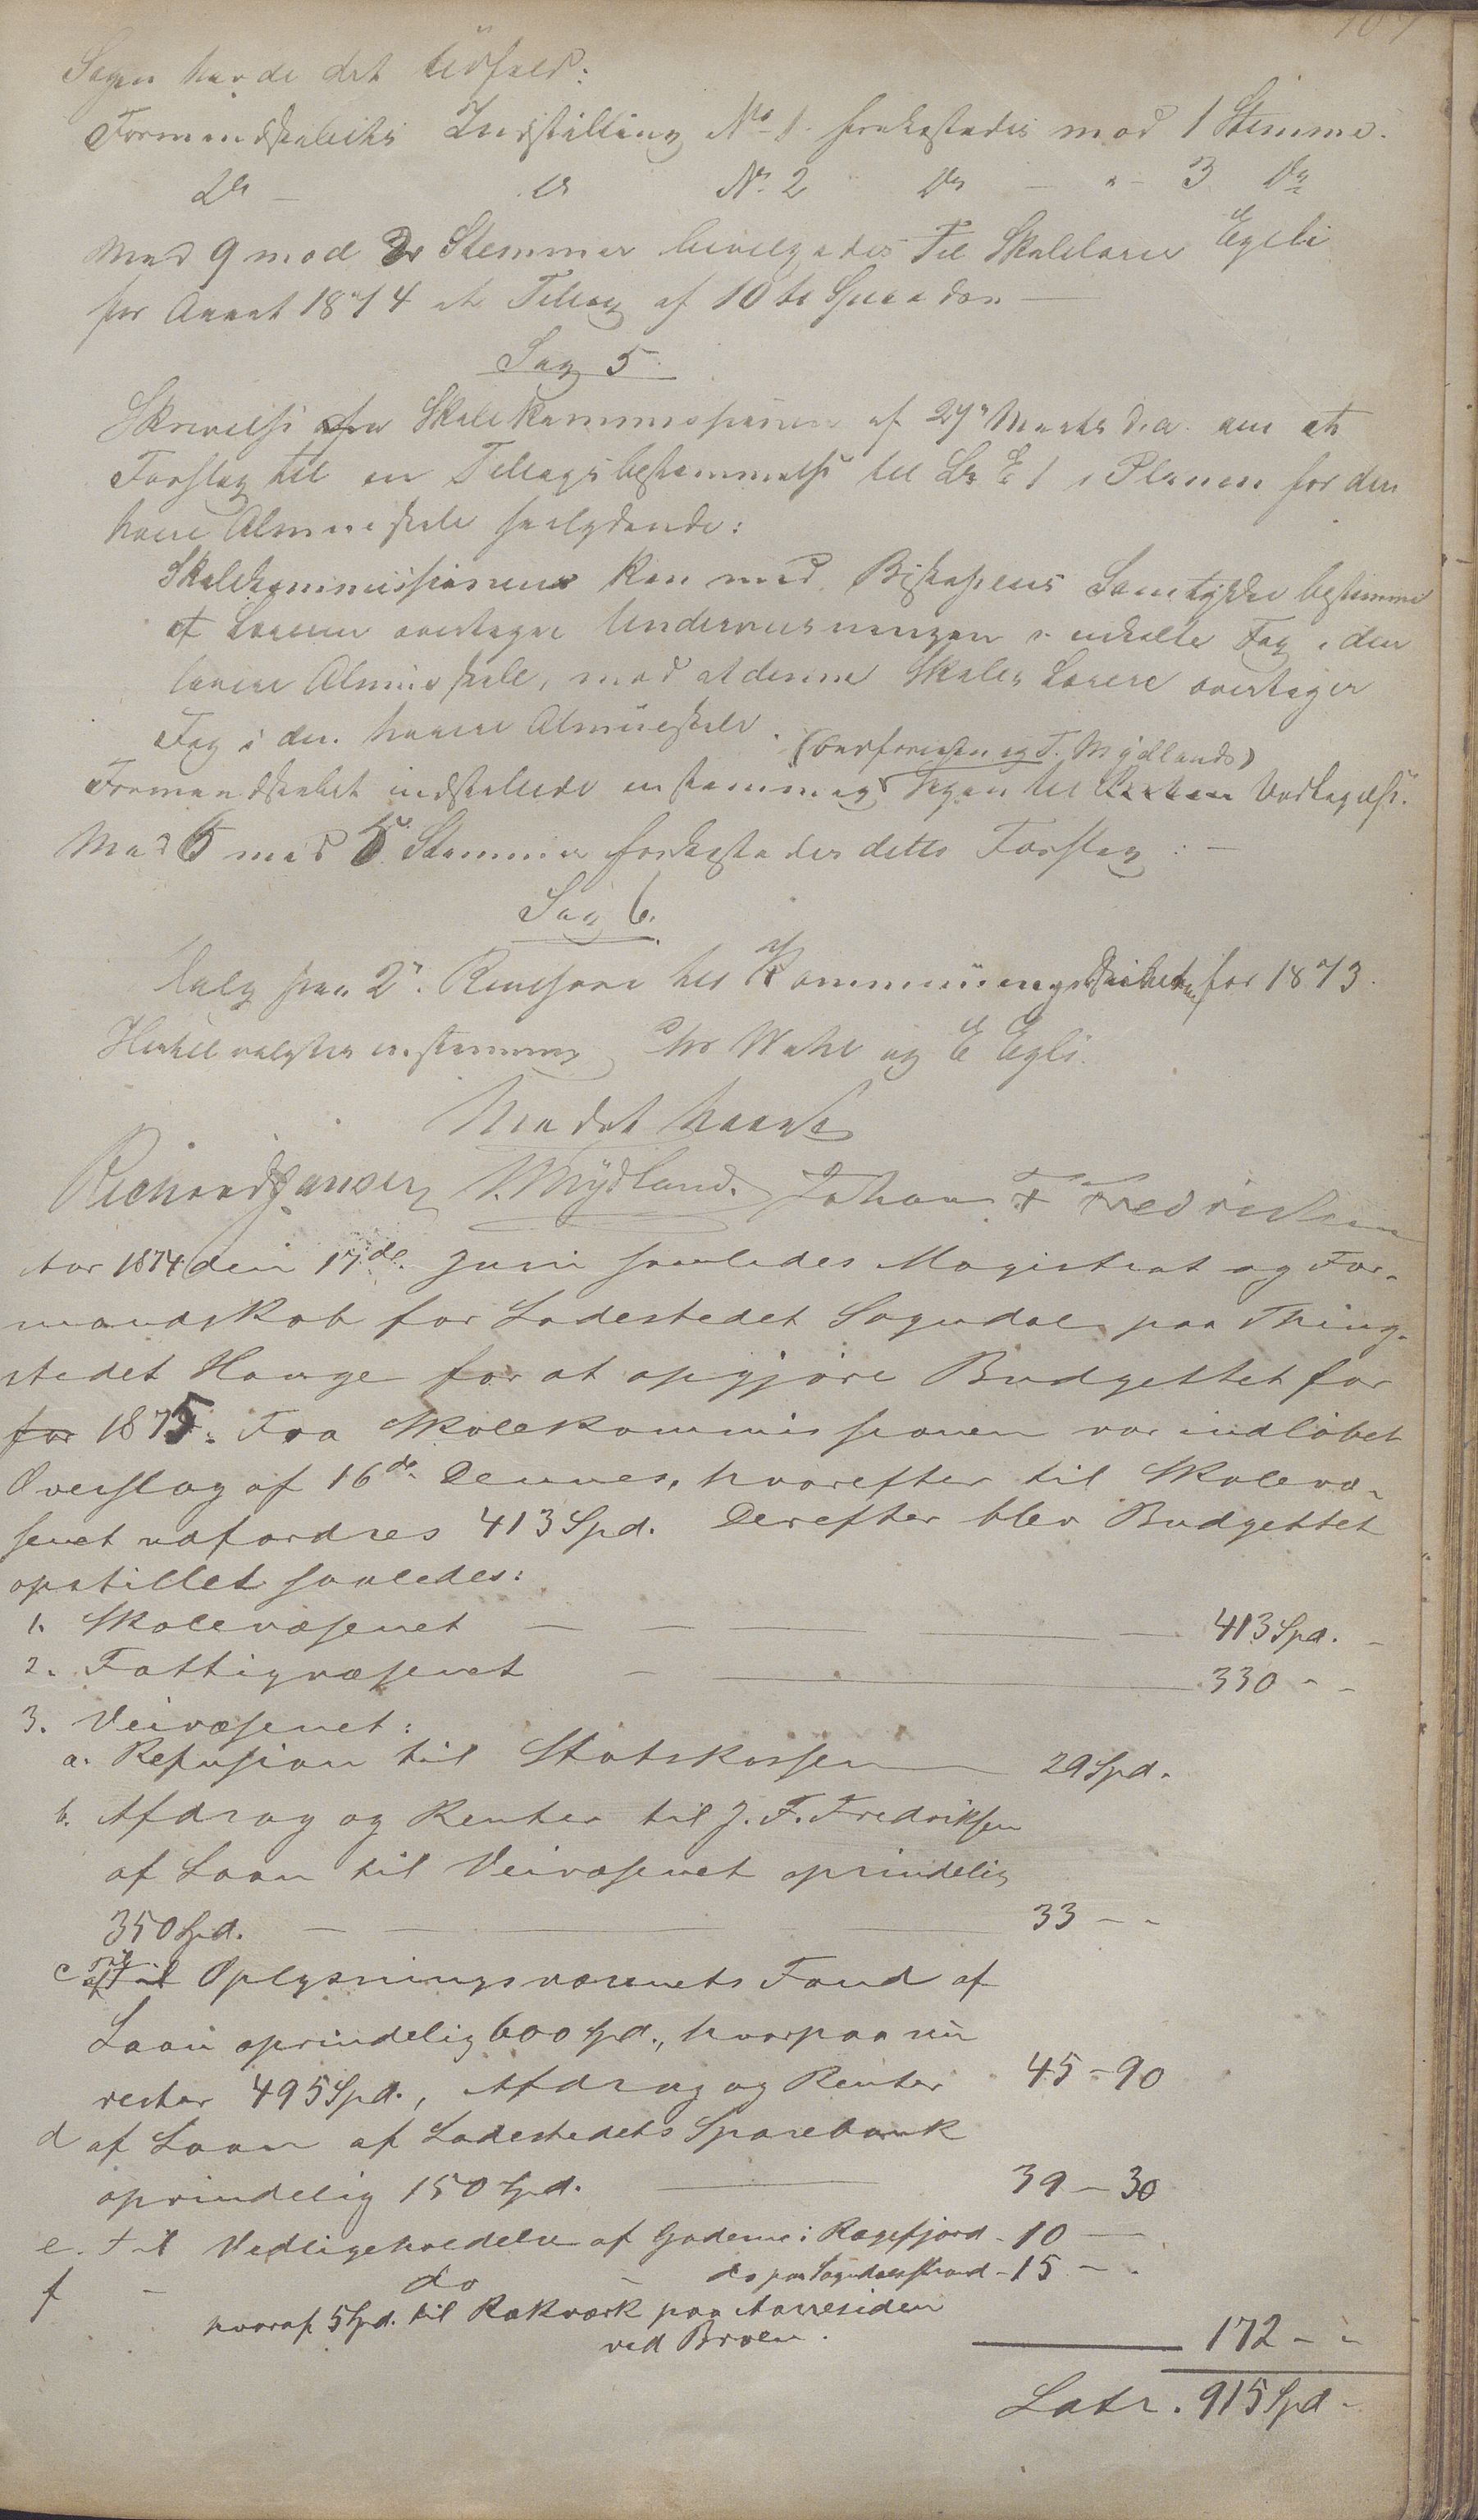 107
Sagen havde det Udfald:
Formandskabets Indstilling No 1. forkastedes mod 1 Stemme.
Do – do No. 2 Do – " – 3 Do
Med 9 mod 3 Stemmer bevilgedes Til Skolelærer Egeli
for Aaret 1874 et Tillæg af 10 ti Speciedaler
Sag 5
Skrivelse fra Skolekommissionen af 27 Marts d.A. om et
Forslag til en Tillægsbestemmelse til Lr E 1 i Planen for den
høiere Almueskole saalydende:
Skolekommissionen kan med Biskopens Samtykke bestemme
at Læreren overtager Undervisningen i enkelte Fag i den
lavere Almueskole, mod at denne Skoles Lærere overtager
Fag i den høiere Almueskole.
(Ordføreren og T. Mydlands)
Formandskabet indstillede enstemmig Sagen til Vedtagelse.
Med 6 mod 5 Stemmer forkastedes dette Forslag: –
Sag 6.
Valg paa 2 Revisorer til Kommuneregnskaberne for 1873.
Hertil valgtes enstemmig Chr Wahl og E Egli.
Mødet hævet
Richard Jansen T. Mydland. Johan F Fredriksen
Aar 1874 den 17de Juni samledes Magistrat og For-
mandskab for Ladestedet Sogndal paa Thing-
stedet Hauge for at opgjøre Budgettet for
for 1875. Fra Skolekommissionen var indløbet
Overslag af 16de Dennes, hvorefter til Skolevæ-
senet udfordres 413 Spd. Derefter blev Budgettet
opstillet saaledes:
1. Skolevæsenet — — — — — 413 Spd. –
2. Fattigvæsenet – — 330 – –
3. Veivæsenet:
a. Refusion til Statskassen — 29 Spd.
b. Afdrag og Renter til J. F. Fredriksen
af Laan til Veivæsenet oprindelig
350 Spd. — — 33 – –
c Til Oplysningsvæsenets Fond af
Laan oprindelig 600 Spd., hvorpaa nu
rester 495 Spd., Afdrag og Renter 45 – 90
d af Laan af Ladestedets Sparebank
oprindelig 150 Spd. — 39 – 30
e. til Vedligeholdelse af Gaderne i Rægefjord – 10 —
f – do – do paa Sogndalsstrand – 15 – .
hvoraf 5 Spd. til Rækværk paa Aarresiden
ved Broen.
— 172 – –
Latr. 915 Spd –